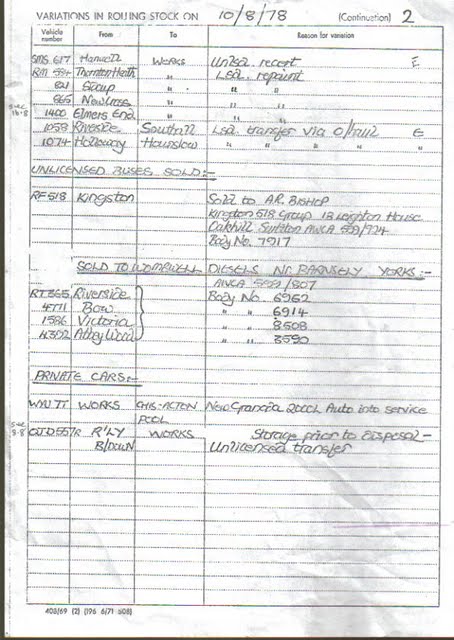 VARIATIONS IN ROLLING STOCK ON 10/8/78 (Continuation) 2
Vehicle number From To Reason for variation
SMS 617 Hanwell WORKS Unlsd. recert E
RM 594 Thornton Heath " Lsd. repaint
821 Sidcup " " "
865 New Cross " " "
1400 Elmers End " " "
1058 Riverside Southall Lsd transfer via o/haul E
1074 Holloway Hounslow " " " "
UNLICENSED BUSES SOLD:-
RF 518 Kingston Sold to A.R. BISHOP
Kingston 518 Group 18 Leighton House
Oakhill Surbiton AWCA 592/724
Body No. 7917
SOLD TO WOMBWELL DIESELS Nr BARNSELY YORKS:-
AWCA 592/807
RT 365 Riverside Body No. 6962
4711 Bow " " 6914
1586 Victoria " " 8508
4392 Abbey Wood " " 3590
PRIVATE CARS:-
WORKS CHIS-ACTON New Granada 2000L Auto into service
POOL
557R R'LY WORKS Storage prior to Disposal -
B/DOWN Unlicensed transfer
405/69 (2) (196 6/71 508)